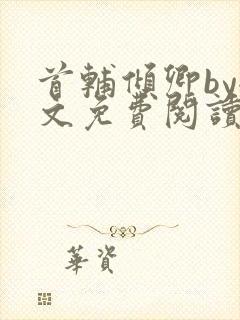 首輔傾卿by
文免費閱讀
華資